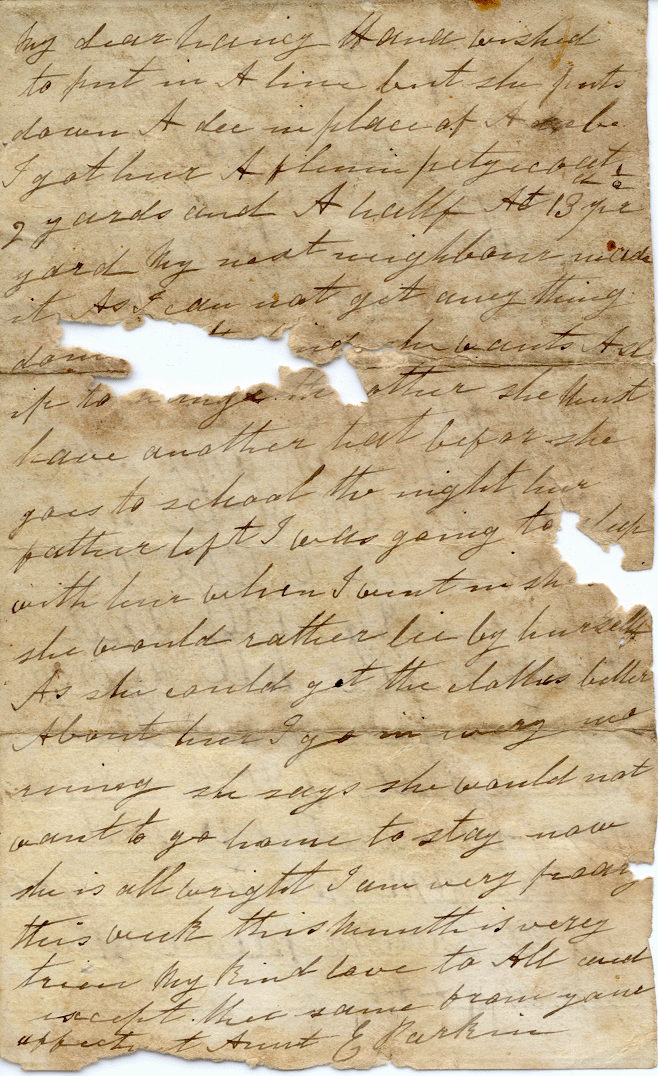 My dear nancy Hana wished
to put in A line but she puts
down A dee in place of A be
I got hur A flenin petycoat
2 yards and A hallf At 13 d ½ per
yard My next neighbour made
it As I can not get aney thing
done she wants As
up to the other she Must
have another hat befor she
goes to school the night hur
father left I was going to sleep
with hur when I went in she
she would rather lie by hurself
As she could get the clothes better
About hur I go in every mo
rning she says she would not
want to go home to stay now
she is all wright I am very
this week this Month is verey
My kind love to All and
except the same from your
affect t Aunt E Parkin